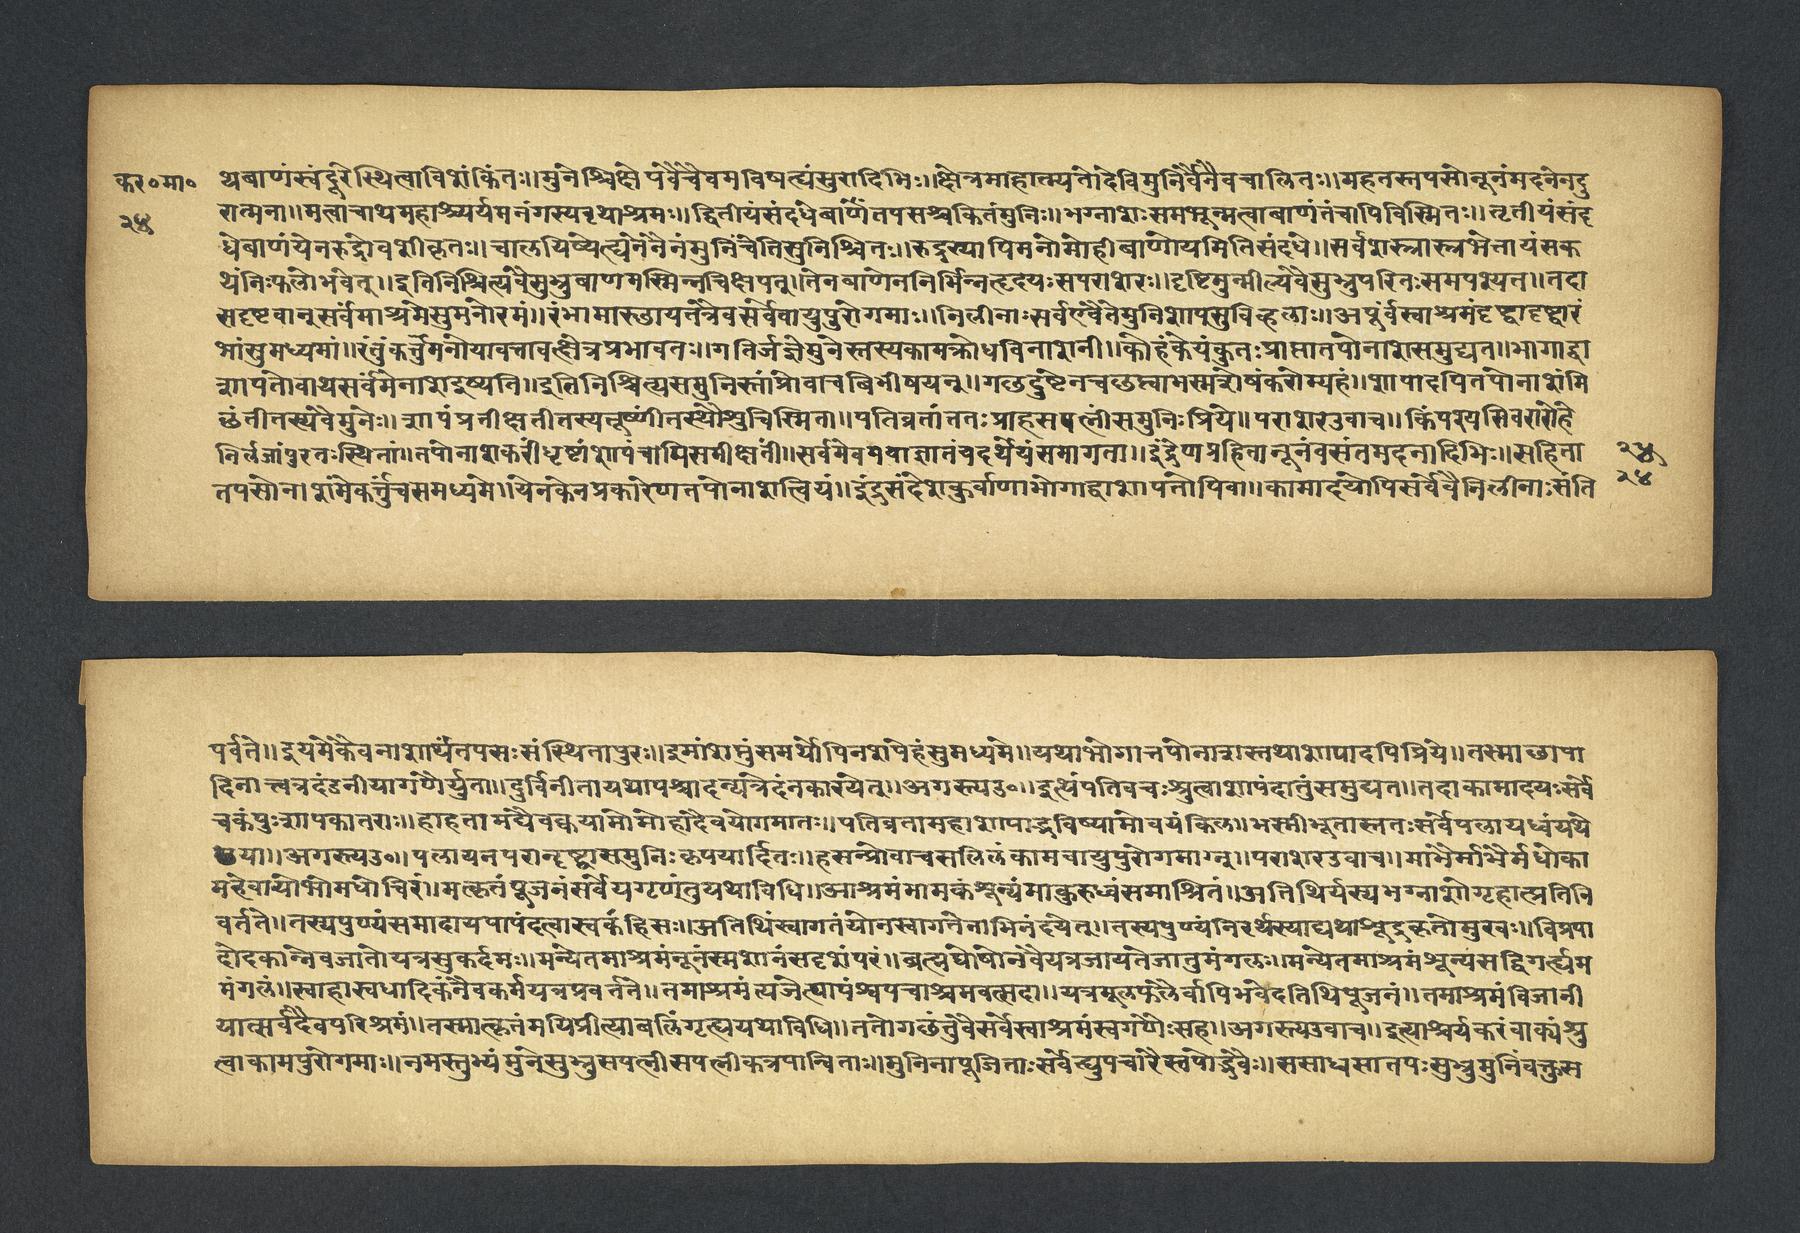 कर॰मा॰
२५
थबाणंस्वंदूरेस्थित्वाविशंकितः॥मुनेश्चिक्षेपवैचैवमविषत्यंसुरादिभिः॥क्षेत्रमाहात्म्यतोदेविमुनिर्वैनैवचालितः॥महनस्तपसोनूनंमदनेनदु
रात्मना॥मत्वाचाथमहाश्चर्यमनंगस्यवृथाश्रमः॥द्वितीयंसंदधेबाणंतपसश्चकितंमुनिः॥भग्नाशःसमभून्मत्वाबाणंतंचापिविस्मितः॥तृतीयंसंदृ
धेबाणंयेनरुद्रोवशीकृतः॥चालयिष्येत्यनेनैनंमुनिंचेतिसुनिश्चितः॥रुद्रस्यापिमनोमोहीबाणोयमितिसंदधे॥सर्वशस्त्रास्त्रभेत्तायंसक
थंनिःफलोभवेत्॥इतिनिश्चित्यवैसुभ्रुबाणमस्मिन्नचिक्षपत्॥तेनबाणेननिर्भिन्नहृदयःसपराशरः॥दृष्टिमुन्मील्यवैसुभ्रुपरितःसमपश्यत॥तदा
सदृष्टवान्सर्वमाश्रमेसुमनोरमं॥रंभामास्तायतंत्रैवसर्वेवायुपुरोगमाः॥निलीनाःसर्वएवैतेमुनिशापसुविह्वलाः॥अपूर्वंस्वाश्रमंदृष्ट्वादृष्ट्वारं
भांसुमध्यमां॥रंतुंकर्त्तुमनोयावत्तावत्क्षेत्रप्रभावतः॥गतिर्जज्ञेमुनेस्तस्यकामक्रोधविनाशनी॥कोहंकेयंकुतःप्राप्तातपोनाशसमुद्यत॥भोगाद्वा
शापतोवाथसर्वमेनाशदुष्यति॥इतिनिश्चित्यसमुनिस्तांप्रोवाचबिभीषयन्॥गछदुष्टेनचछत्वाभस्मशेषंकरोम्यहं॥शापादपितपोनाशंमि
छंतीतस्यवैमुनेः॥शापंप्रतीक्षतीतस्यतूष्णींतस्थौशुचिस्मिता॥पतिव्रतांततःप्राहसपत्नींसमुनिःप्रिये॥पराशरउवाच॥किंपश्यसिवरारोहे
निर्लजांपुरतःस्थितां॥तपोनाशकरींधृष्टांशापंचापिसमीक्षतीं॥सर्वमेवमयाज्ञातंयदर्थेयंसमागता॥इंद्रेणप्रहितानूनंवसंतमदनादिभिः॥सहिता
तपसोनाशंमेकर्त्तुंचसमध्यमे॥येनकेनप्रकारेणतपोनाशत्वियं॥इंद्रसंदेशंकुर्वाणाभोगाद्वाशापतोपिवा॥कामादयोपिसर्वेवैनिलीनाःसंति
२५
२४
पर्वते॥इयमेकैवनाशार्थंतपसःसंस्थितापुरः॥इमांशप्तुंसमर्थोपिनशपेहंसुमध्यमे॥यथाभोगात्तपोनाशस्तथाशापादपिप्रिये॥तस्माछापा
दिनात्त्वत्रदंडनीयागणैर्युता॥दुर्विनीतायथापश्चादन्यत्रेदंनकारयेत्॥अगस्त्यउ॰॥इत्थंपतिवचःश्रुत्वाशापंदातुंसमुद्यत॥तदाकामादयःसर्वे
चकंपुःशापकातराः॥हाहतामंचैवक्वयामोमोहाद्दैवयोगमातः॥पतिव्रतामहाशापाद्भविष्यामोवयंकिल॥भस्मीभूतास्ततःसर्वेपलायध्वंयथे
छया॥अगस्त्यउ॰॥पलायनपरान्दृष्ट्वासमुनिःकृपयार्दितः॥हसन्प्रोवाचसलिलंकामवायुपुरोगमाग्नु॥पराशरउवाच॥माभैर्माभैर्मधोका
महेवायोभोमघोचिरं॥मत्कृतंपूजनंसर्वेयगृणंतुयथाविधि॥आश्रमंमामकंशून्यंमाकुरुध्वंसमाश्रितं॥अतिथिर्यस्यभग्नाशोगृहात्प्रतिनि
वर्तते॥तस्यपुण्यंसमादायपापंदत्वास्वकंहिसः॥अतिथिंस्वागतंयोनस्वागतेनाभिनंदयेत्॥तस्यपुण्यंनिरर्थस्याद्यथाश्रूद्रकृतोमुरवः॥विप्रपा
दोदकान्नैवजातोयत्रसुकर्दमः॥मन्येतमाश्रमंनूनंस्मशानंसदृशंपरं॥ब्रह्मघोषोनवैयत्रजायतेजातुमंगलः॥मन्येतमाश्रमंशून्यंसद्विगर्ह्यम
मंगलं॥स्वाहास्वधादिकंनैवकर्मयत्रप्रवर्तते॥तमाश्रमंत्यजेत्प्राप‍ंश्वपचाश्रमवत्सदा॥यत्रमूलफलैर्वापिभवेदतिथिपूजनं॥तमाश्रमंविजानी
यात्सर्वदैवपरिश्रमं॥तस्मात्कृतंमयिप्रीत्याबलिंगृह्ययथाविधि॥ततोगछंतुवैसर्वेस्वाश्रमंस्वगणैःसह॥अगस्त्यउवाच॥इत्याश्चर्यकरंवाक्यंश्रु
त्वाकामपुरोगमाः॥नमस्तुभ्यंमुनेसुभ्रुसपत्नीसपत्नीकत्रपान्विताः॥मुनिनापूजिताःसर्वेह्युपचारैस्तपोद्भवैः॥ससाधसातपःसुभ्रुमुनिंवक्तुस